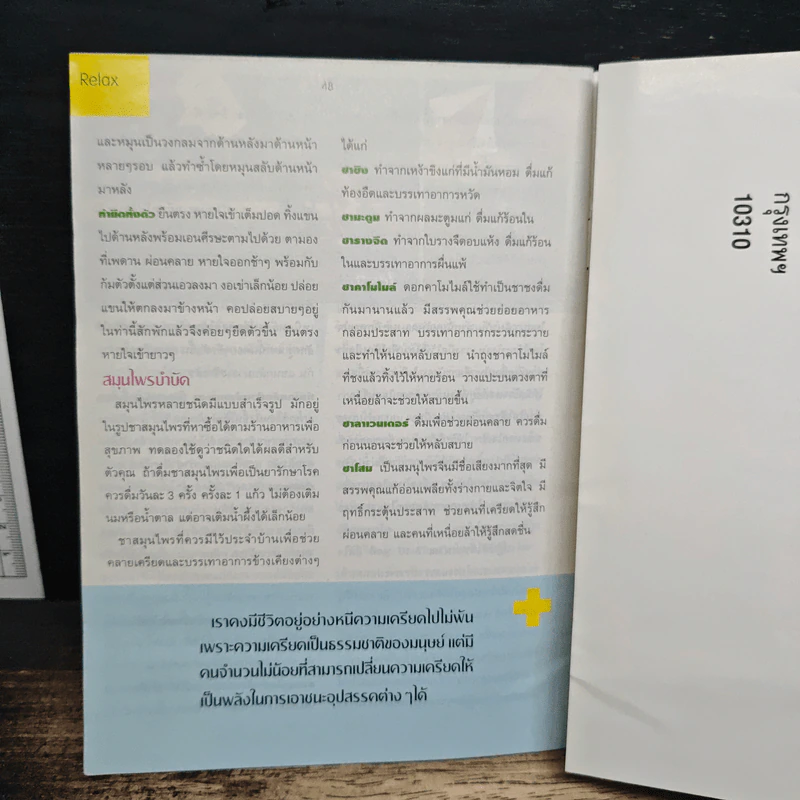 Relax
48
และหมุนเป็นวงกลมจากด้านหลังมาด้านหน้า
หลายๆรอบ แล้วทำซ้ำโดยหมุนสลับด้านหน้า
มาหลัง
ท่ายืดทั้งตัว ยืนตรง หายใจเข้าเต็มปอด ทิ้งแขน
ไปด้านหลังพร้อมเอนศีรษะตามไปด้วย ตามอง
ที่เพดาน ผ่อนคลาย หายใจออกช้าๆ พร้อมกับ
ก้มตัวตั้งแต่ส่วนเอวลงมา งอเข่าเล็กน้อย ปล่อย
แขนให้ตกลงมาข้างหน้า คอปล่อยสบายๆอยู่
ในท่านี้สักพักแล้วจึงค่อยๆยืดตัวขึ้น ยืนตรง
หายใจเข้ายาวๆ
สมุนไพรบำบัด
สมุนไพรหลายชนิดมีแบบสำเร็จรูป มักอยู่
ในรูปชาสมุนไพรที่หาซื้อได้ตามร้านอาหารเพื่อ
สุขภาพ ทดลองใช้ดูว่าชนิดใดได้ผลดีสำหรับ
ตัวคุณ ถ้าดื่มชาสมุนไพรเพื่อเป็นยารักษาโรค
ควรดื่มวันละ 3 ครั้ง ครั้งละ 1 แก้ว ไม่ต้องเติม
นมหรือน้ำตาล แต่อาจเติมน้ำผึ้งได้เล็กน้อย
ชาสมุนไพรที่ควรมีไว้ประจำบ้านเพื่อช่วย
คลายเครียดและบรรเทาอาการข้างเคียงต่างๆ
ได้แก่
ชาขิง ทำจากเหง้าขิงแก่ที่มีน้ำมันหอม ดื่มแก้
ท้องอืดและบรรเทาอาการหวัด
ชามะตูม ทำจากผลมะตูมแก่ ดื่มแก้ร้อนใน
ชารางจืด ทำจากใบรางจืดอบแห้ง ดื่มแก้ร้อน
ในและบรรเทาอาการผื่นแพ้
ชาคาโมไมล์ ดอกคาโมไมล์ใช้ทำเป็นชาชงดื่ม
กันมานานแล้ว มีสรรพคุณช่วยย่อยอาหาร
กล่อมประสาท บรรเทาอาการกระวนกระวาย
และทำให้นอนหลับสบาย นำถุงชาคาโมไมล์
ที่ชงแล้วทิ้งไว้ให้หายร้อน วางแปะบนดวงตาที่
เหนื่อยล้าจะช่วยให้สบายขึ้น
ชาลาเวนเดอร์ ดื่มเพื่อช่วยผ่อนคลาย ควรดื่ม
ก่อนนอนจะช่วยให้หลับสบาย
ชาโสม เป็นสมนุไพรจีนมีชื่อเสียงมากที่สุด มี
สรรพคุณแก้อ่อนเพลียทั้งร่างกายและจิตใจ มี
ฤทธิ์กระตุ้นประสาท ช่วยคนที่เครียดให้รู้สึก
ผ่อนคลาย และคนที่เหนื่อยล้าให้รู้สึกสดชื่น
เราคงมีชีวิตอยู่อย่างหนีความเครียดไปไม่พ้น
เพราะความเครียดเป็นธรรมชาติของมนุษย์ แต่มี
คนจำนวนไม่น้อยที่สามารถเปลี่ยนความเครียดให้
เป็นพลังในการเอาชนะอุปสรรคต่าง ๆได้
กรุงเทพฯ
10310